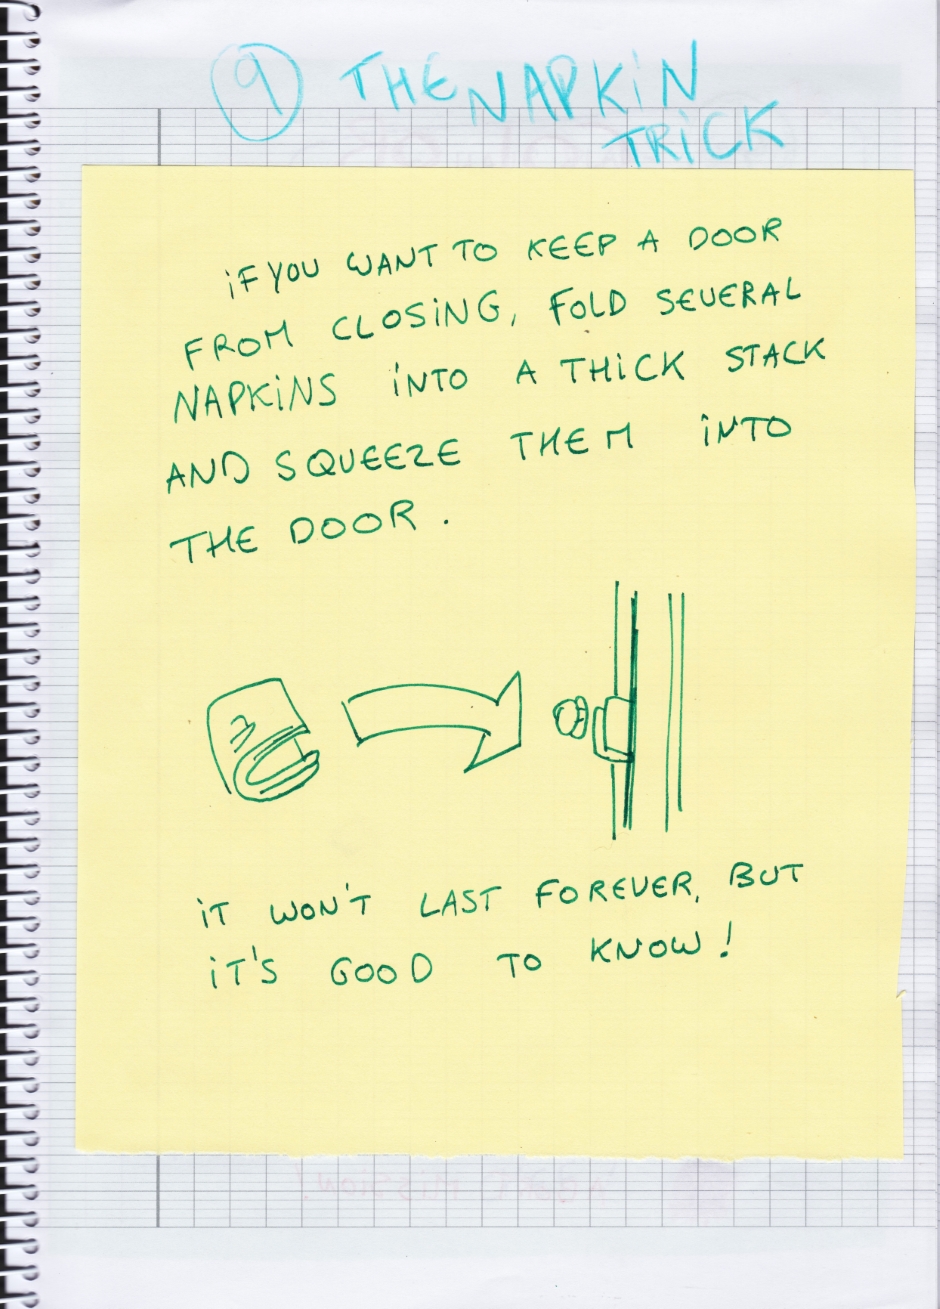 9 THE NAPKIN
TRICK
IF YOU WANT TO KEEP A DOOR
FROM CLOSING, FOLD SEVERAL
NAPKINS INTO A THICK STACK
AND SQUEEZE THEM INTO
THE DOOR.
IT WON'T LAST FOREVER, BUT
IT'S GOOD TO KNOW!